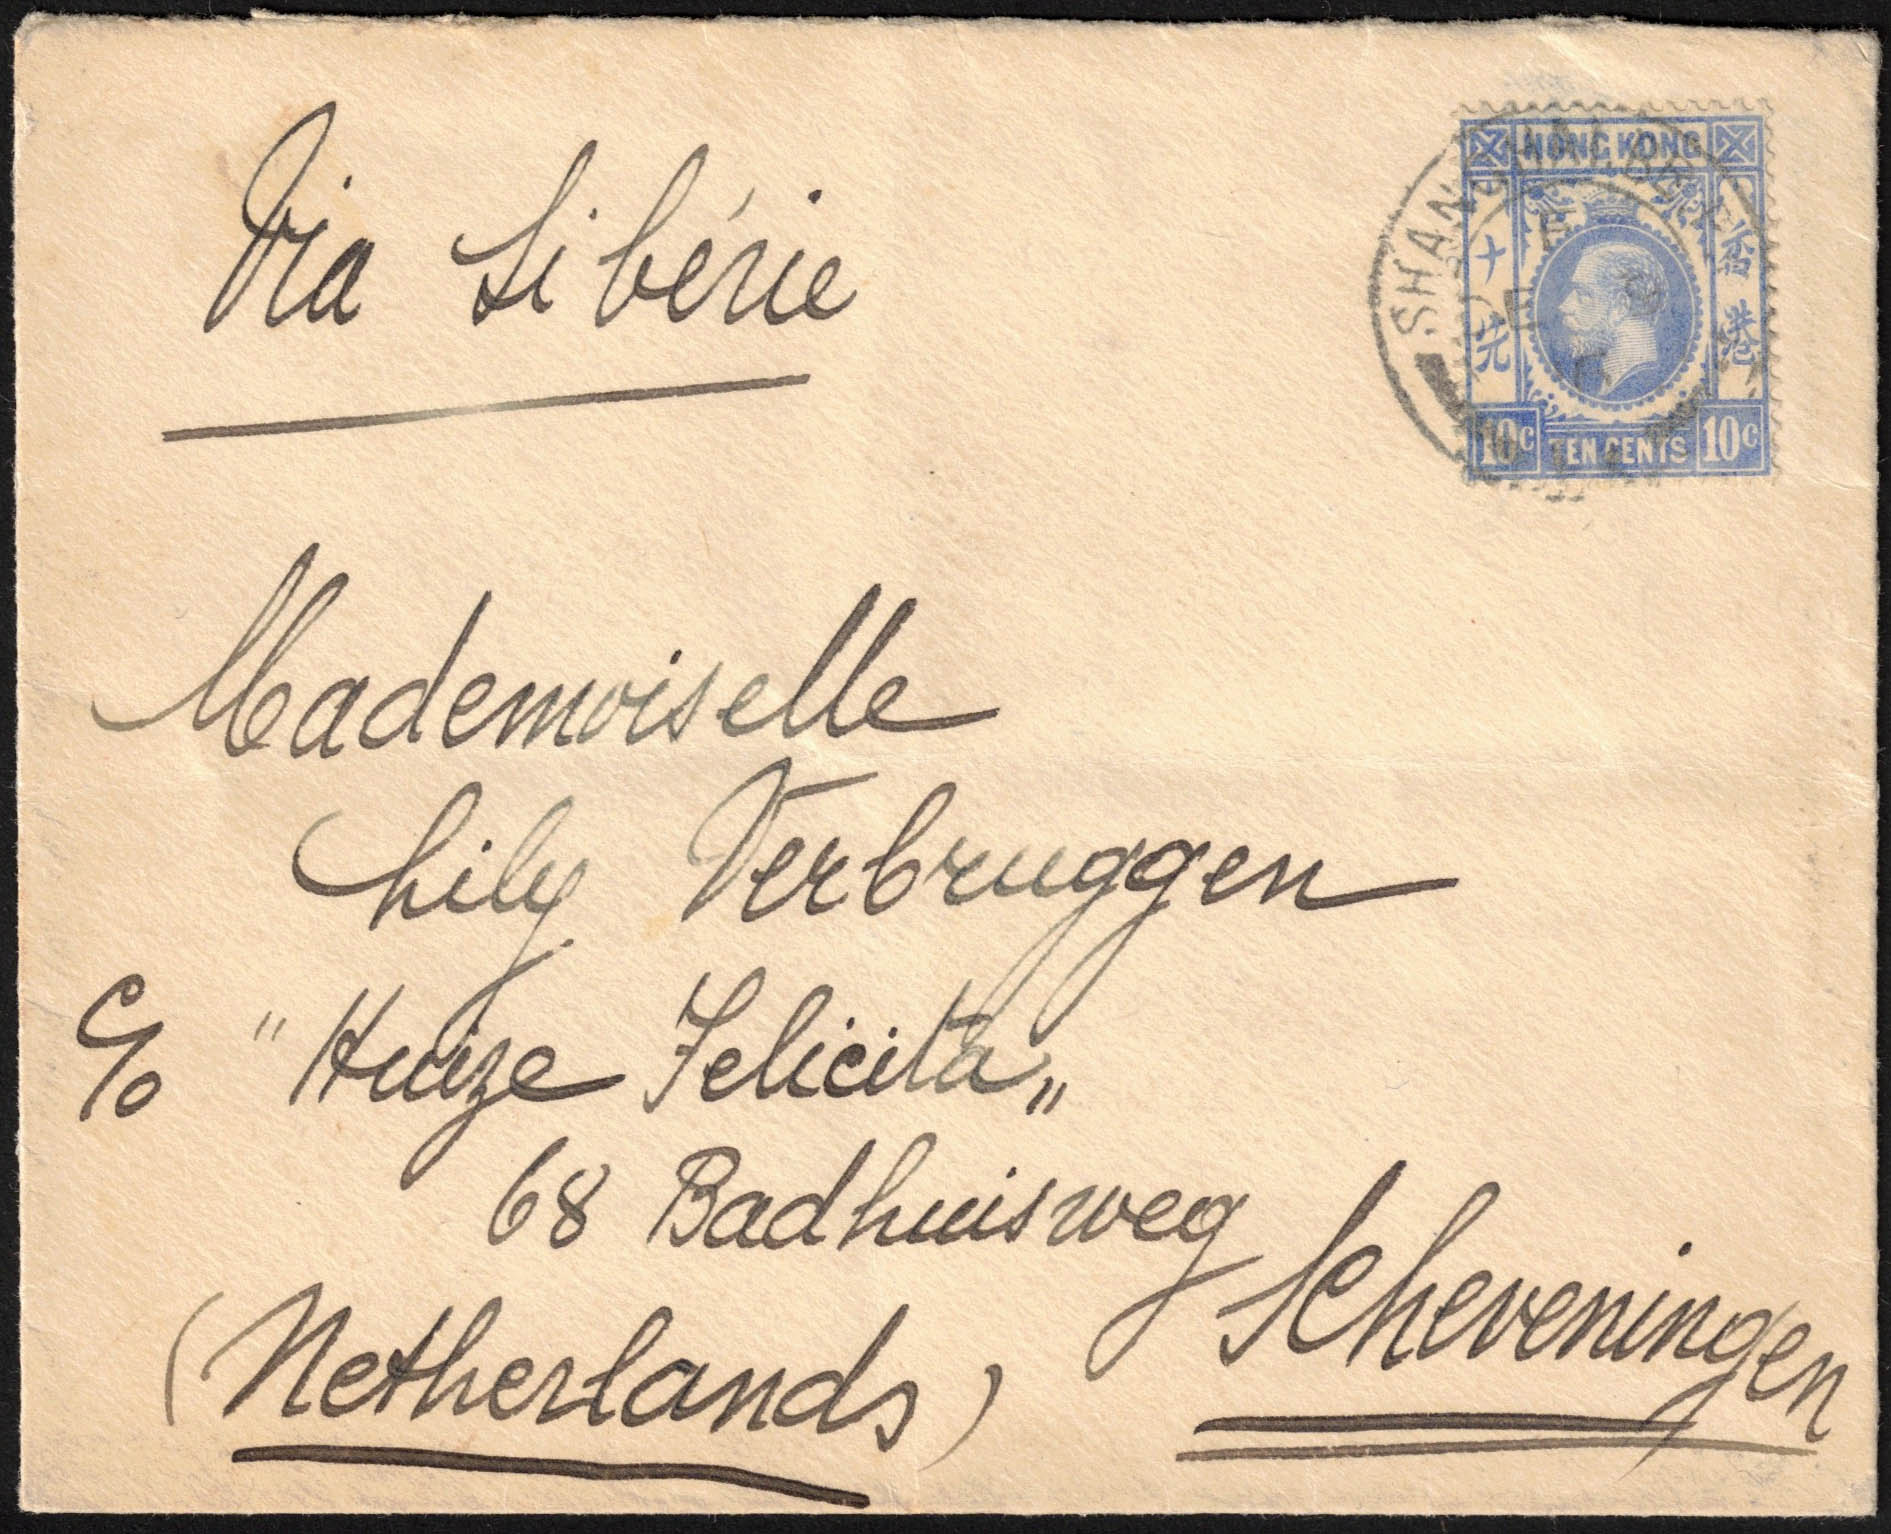 Via Sibérie
HONG KONG
香港
十先
10c TEN CENTS 10c
SHANGHAI
Mademoiselle
Lily Verbruggen
c/o "Huize Felicita„
68 Badhuisweg
Scheveningen
(Netherlands)